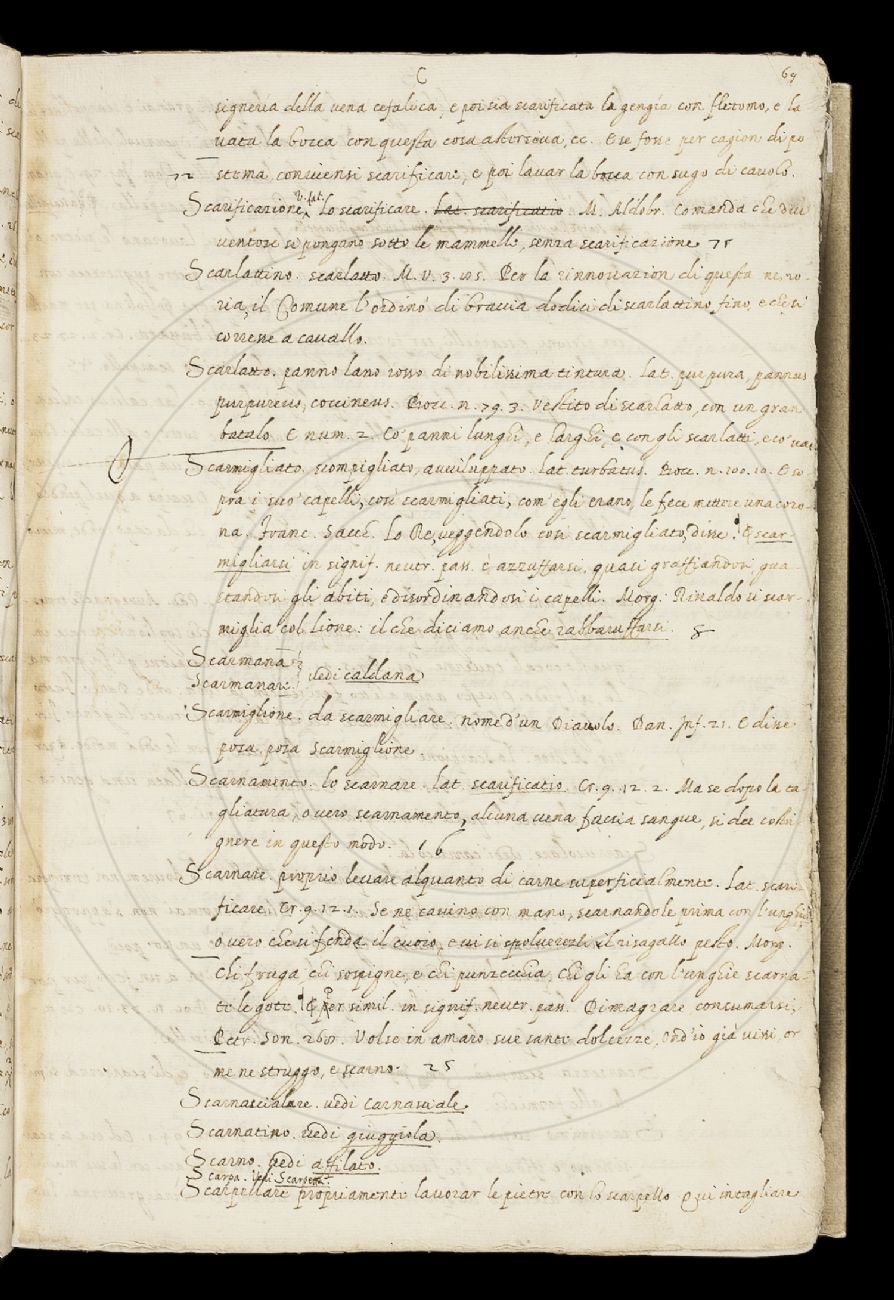 C
69
signeria della vena cefalica, e poi sia scarificata la gengía con fletomo, e la
vata la bocca con questa cosa attorsova, ec. E se fosse per cagion di po
72 stema, conviensi scarificare, e poi lavar la bocca con sugo di cavolo.
Scarificazione Lo scarificare. Lat. scarificatio. M. Aldobr. Comanda che due
ventose si pongano sotto le mammelle, senza scarificazione 75
Scarlattino. scarlatto. M. V. 3. 105. Per la rinnovazion di questa memo-
ria, il Comune l'ordinò di braccia dodici di scarlattino fino, e che si
corresse a cavallo.
Scarlatto. panno lano rosso di nobilissima tintura. Lat. purpura, pannus
purpureus, coccineus. Bocc. n. 79. 3. Vestito di scarlatto, con un gran
batalo E num. 2. Co' panni lunghi, e larghi, e con gli scarlatti, e co' vai
Scarmigliato. scompigliato, avviluppato. lat. turbatus. Bocc. n. 100. 10. E so
pra i suo' capelli, così scarmigliati, com'egli erano, le fece mettere una coro-
na. Franc. Sacch. Lo Re, veggendolo così scarmigliato, disse. E scar
migliarsi in signif. neutr. pass. è azzuffarsi, quasi graffiandosi, gua-
standosi gli abiti, e disordinandosi i capelli. Morg. Rinaldo si scar-
miglia col lione: il che diciamo anche rabbaruffarsi. 8
Scarmana
Scarmanare vedi caldana
Scarmiglione. da scarmigliare. nome d'un Diavolo. Dan. Inf. 21. E disse
posa, posa Scarmiglione.
Scarnamento. lo scarnare. lat. scarificatio. Cr. 9. 12. 2. Ma se dopo la ta
gliatura, o vero scarnamento, alcuna vena faccia sangue, si dee costri
gnere in questo modo. 16
Scarnare. proprio levare alquanto di carne superficialmente. Lat. scari
ficare. Cr. 9. 12. 1. Se ne cavino con mano, scarnandole prima con l'unghie
o vero che si fenda il cuoio, e vi si spolverezzi il risagallo pesto. Morg.
Chi fruga, chi sospigne, e chi punzecchia, Chi gli ha con l'unghie scarna-
te le gote. E per simil. in signif. neutr. pass. Dimagrare consumarsi,
Petr. Son. 260. Volse in amaro sue sante dolcezze, Ond'io già vissi, or
me ne struggo, e scarno. 25
Scarnascialare. vedi Carnasciale
Scarnatino. vedi giuggiola.
Scarno. vedi affilato.
Scarpa. Vedi Scarsetta.
Scarpellare propriamente lavorar le pietre con lo scarpello. Qui intagliare